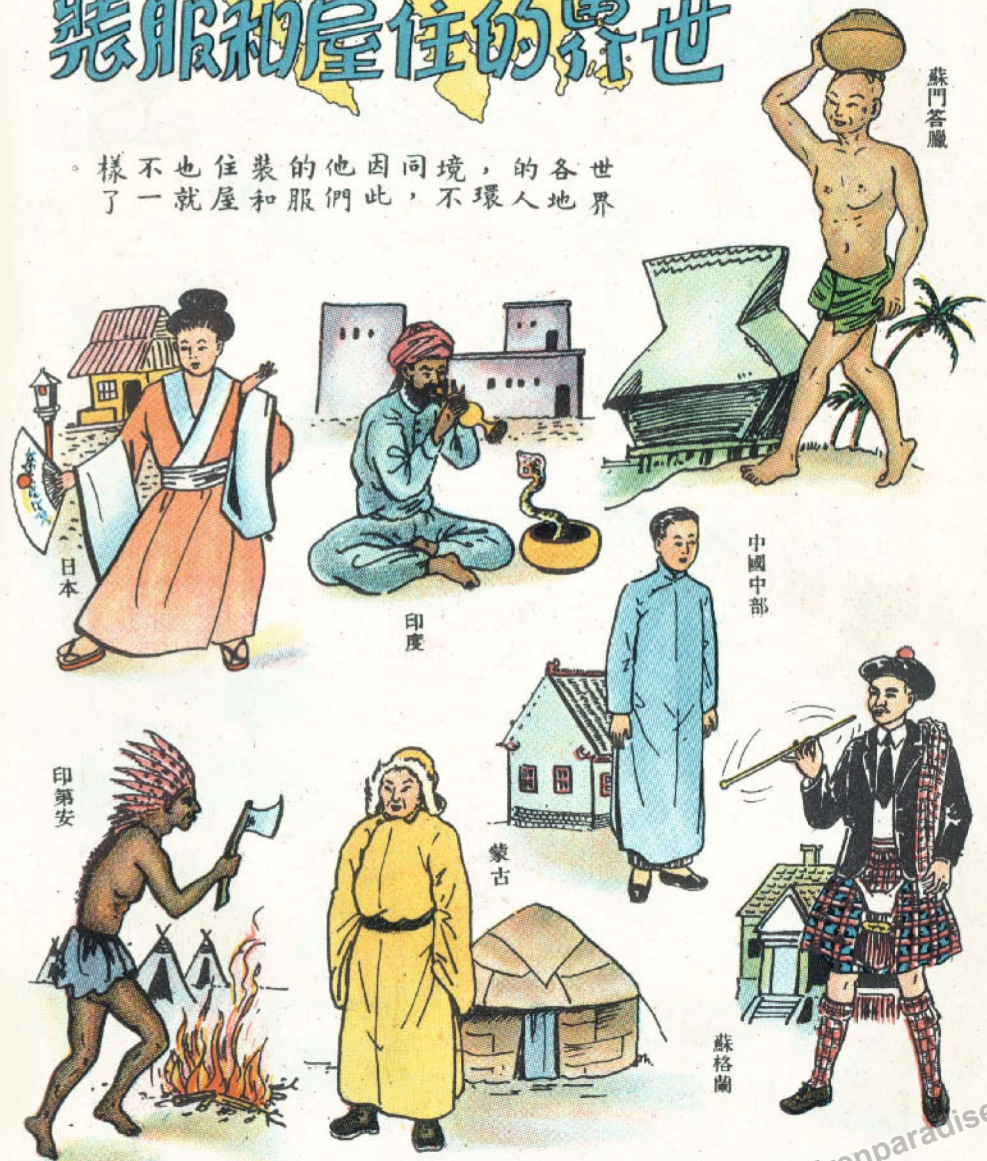 世界的住屋和服裝
世界各地的人，環境不同，因此他們的服裝和住屋也就不一樣了。
蘇門答臘
日本
印度
中國中部
印第安
蒙古
蘇格蘭
onparadise